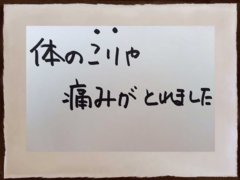 体のこりや
痛みがとれました